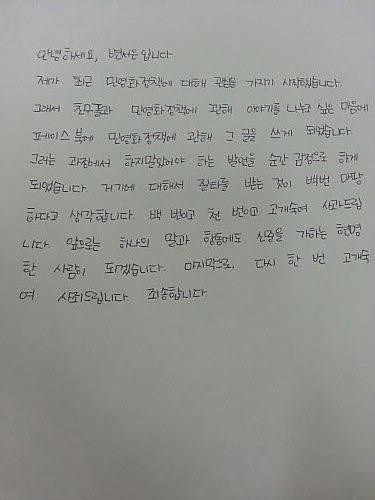 안녕하세요, 변서은입니다.
제가 최근 민영화정책에 대해 관심을 가지기 시작했습니다.
그래서 친구들과 민영화정책에 관해 이야기를 나누고 싶은 마음에
페이스 북에 민영화정책에 관해 그 글을 쓰게 되었습니다.
그러는 과정에서 하지말았어야 하는 발언을 순간 감정으로 하게
되었습니다. 거기에 대해서 질타를 받는 것이 백번 마땅
하다고 생각합니다. 백 번이고 천 번이고 고개숙여 사과드립
니다. 앞으로는 하나의 말과 행동에도 신중을 가하는 현명
한 사람이 되겠습니다. 마지막으로, 다시 한 번 고개숙
여 사죄드립니다. 죄송합니다.